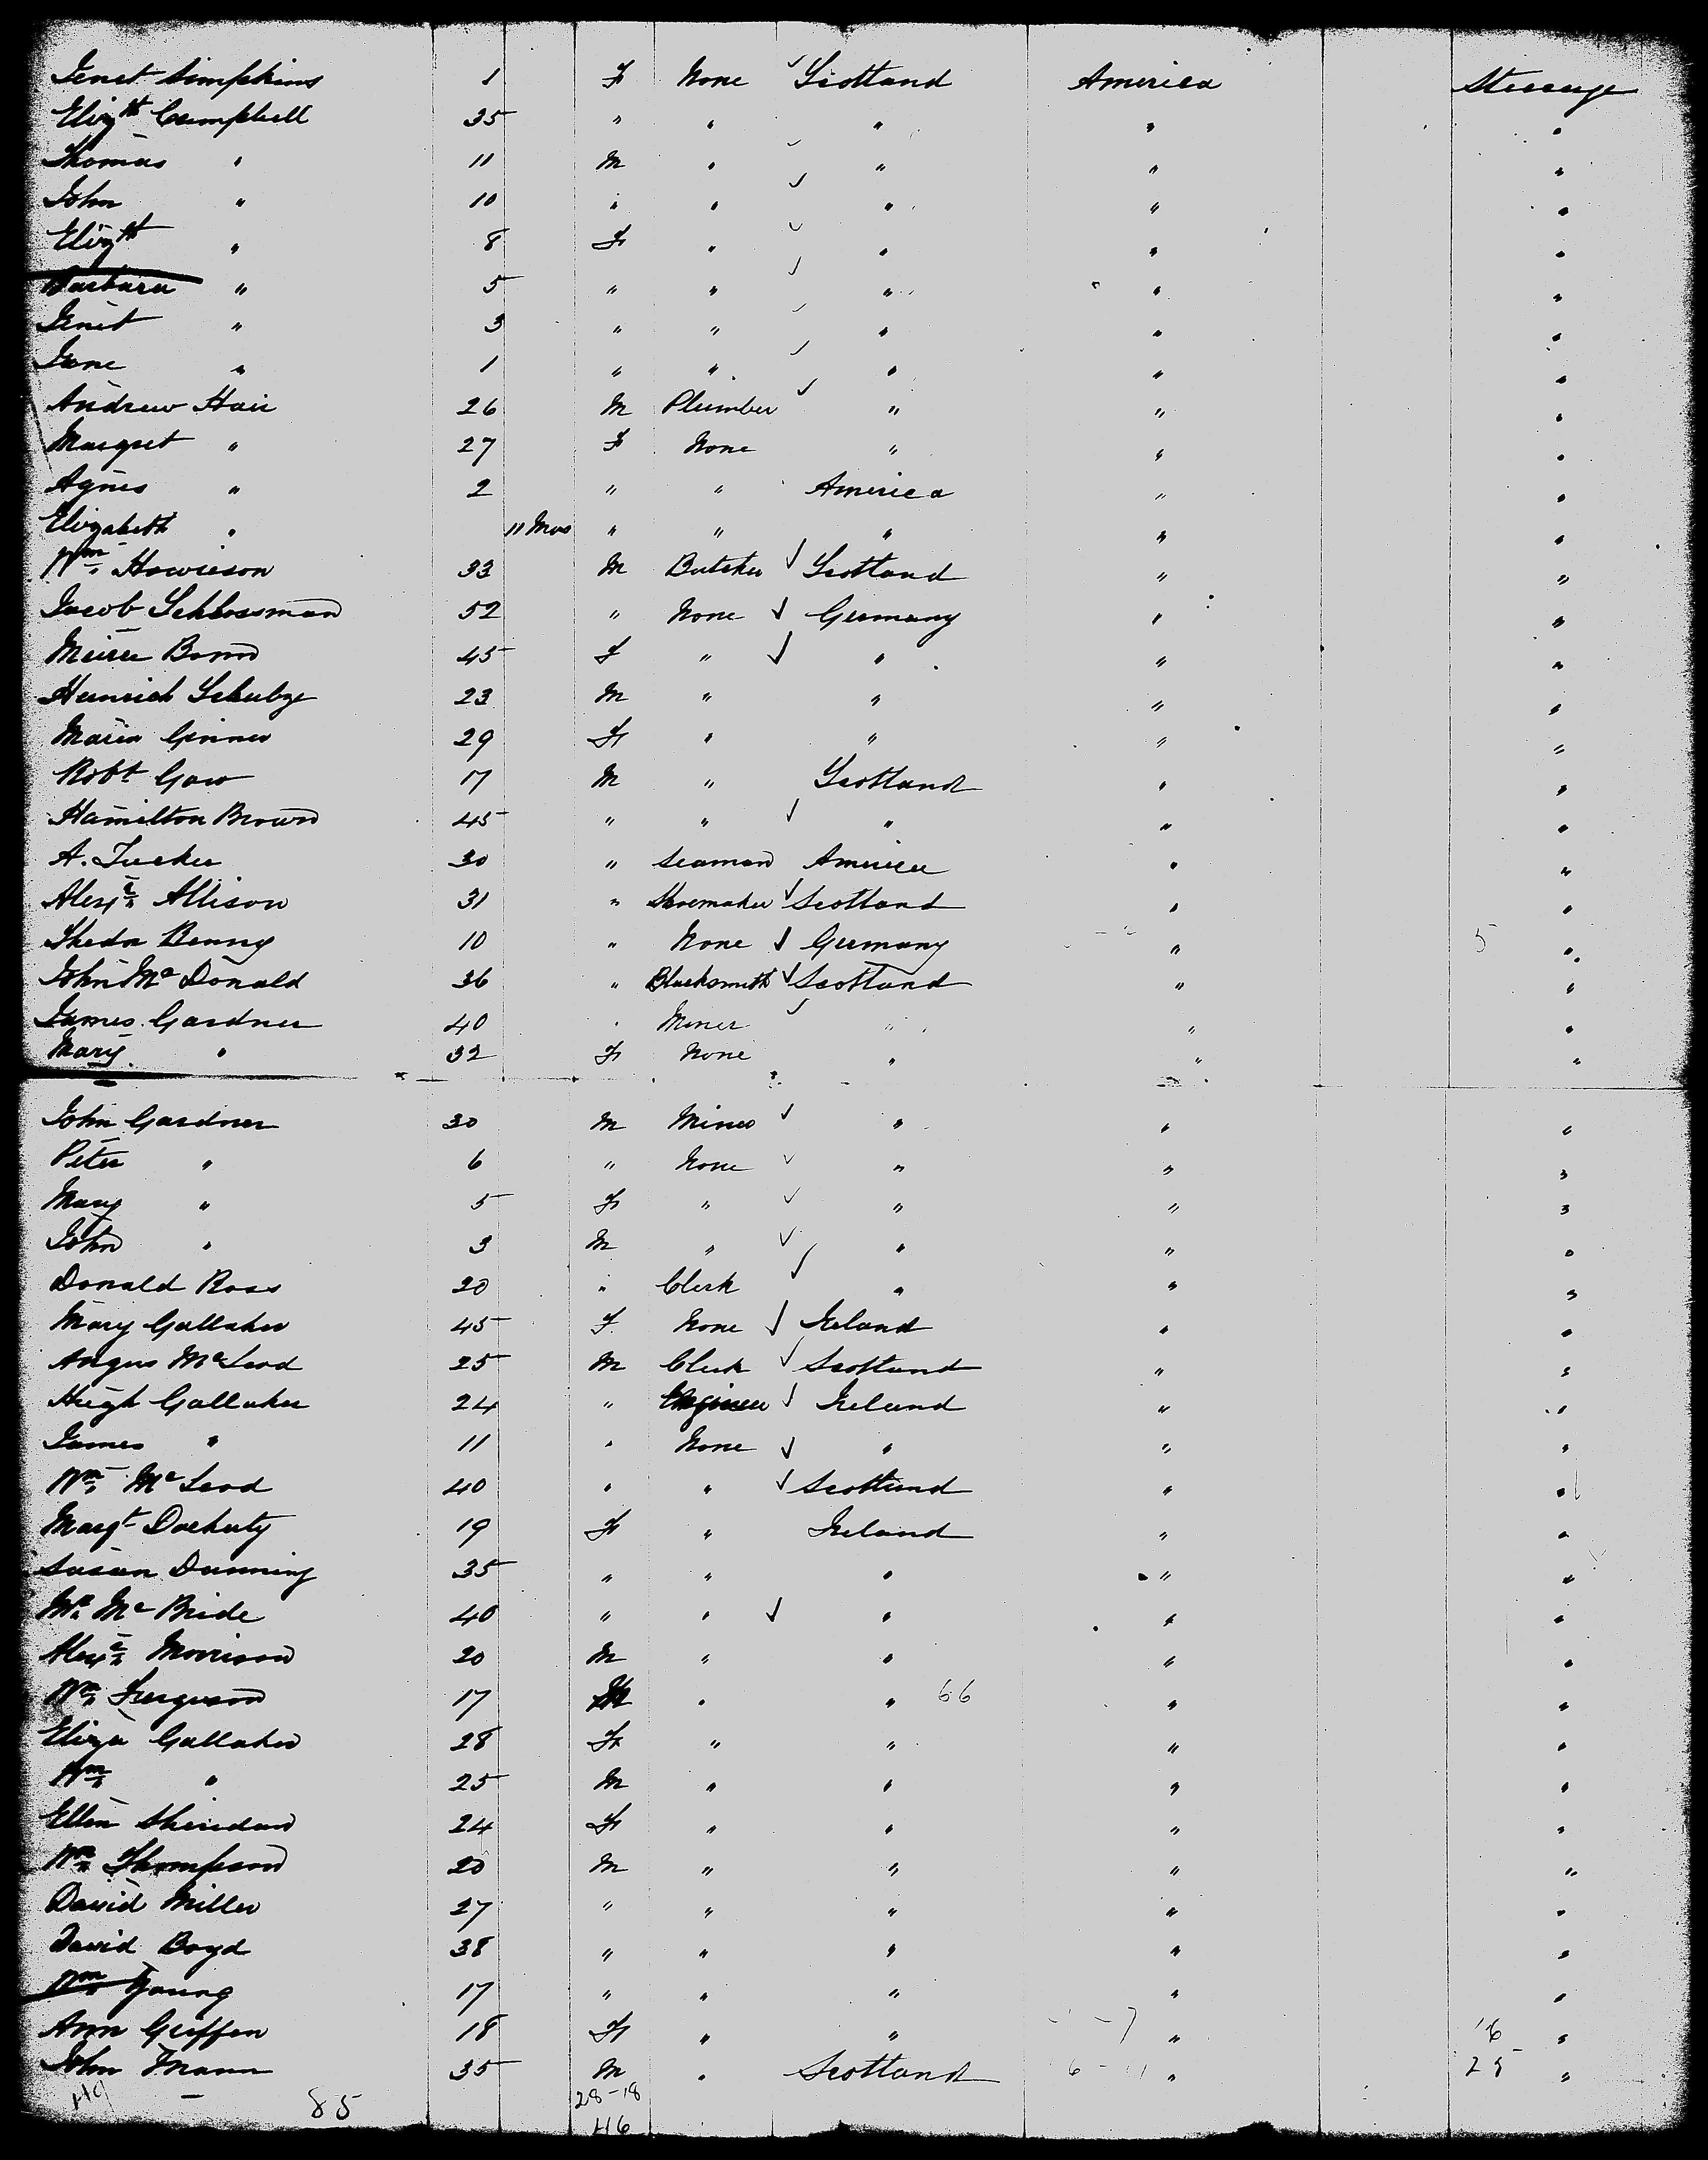 Jenet Simpkins 1 F None Scotland America Steerage
Elizth Campbell 35 " " " " "
Thomas " 11 M " " " "
John " 10 " " " " "
Elizth " 8 F " " " "
Barbara " 5 " " " " "
Jenet " 3 " " " " "
Jane " 1 " " " " "
Andrew Hair 26 M Plumber " " "
Margret " 27 F None " " "
Agnes " 2 " " America " "
Elizabeth " 11 Mos " " " " "
Wm Howieson 33 M Butcher Scotland " "
Jacob Schlossman 52 " None Germany " "
Bond 45 F " " " "
Heinrich Schulze 23 M " " " "
Maria 29 F " " " "
Robt Gow 17 M " Scotland " "
Hamilton Brown 45 " " " " "
A. Tucker 30 " Seaman America " "
Alexr Allison 31 " Shoemaker Scotland " "
Benny 10 " None Germany " 5 "
John McDonald 36 " Blacksmith Scotland " "
James Gardner 40 " Miner " " "
Mary " 32 F None " " "
John Gardner 30 M Miner " " "
Peter " 6 " None " " "
Mary " 5 F " " " "
John " 3 M " " " "
Donald Ross 20 " Clerk " " "
Mary Gallaher 45 F None Ireland " "
Angus McLeod 25 M Clerk Scotland " "
Hugh Gallaher 24 " Engineer Ireland " "
James " 11 " None " " "
Wm McLeod 40 " " Scotland " "
Margt Docherty 19 F " Ireland " "
Susan Dunning 35 " " " " "
McBride 40 " " " " "
Alexr Morrison 20 M " " " "
Wm Ferguson 17 M " " 66 " "
Eliza Gallaher 28 F " " " "
Wm " 25 M " " " "
Ellen Sheridan 24 F " " " "
Wm Thompson 20 M " " " "
David Miller 27 " " " " "
David Boyd 38 " " " " "
Wm Young 17 " " " " "
Ann Griffen 18 F " " - 7 " 16 "
John Mann 35 M " Scotland 6 - 11 " 25 "
49 85 28-18
46